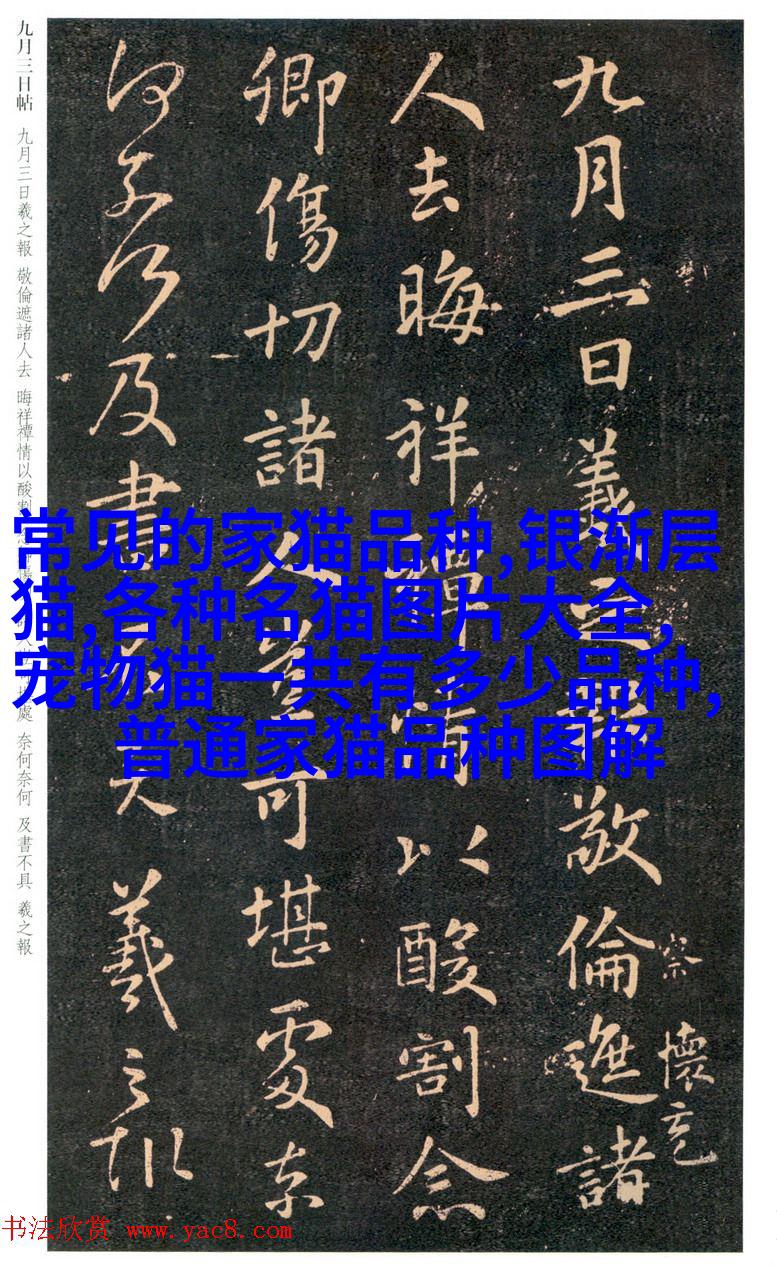 九月三日帖 九月三日羲之報 敬倫遮諸人去 晦祥禫情以酸割
處 奈何奈何 及書不具 羲之報
九月三日羲之報敬倫遮諸
察 懷充
人去晦祥禫情以酸割念
卿傷切諸人豈可堪處奈
何奈何及書不具羲之報
常见的家猫品种,银渐层
猫,各种名猫图片大全,
宠物猫一共有多少品种,
普通家猫品种图解
书法欣赏 www.yac8.com